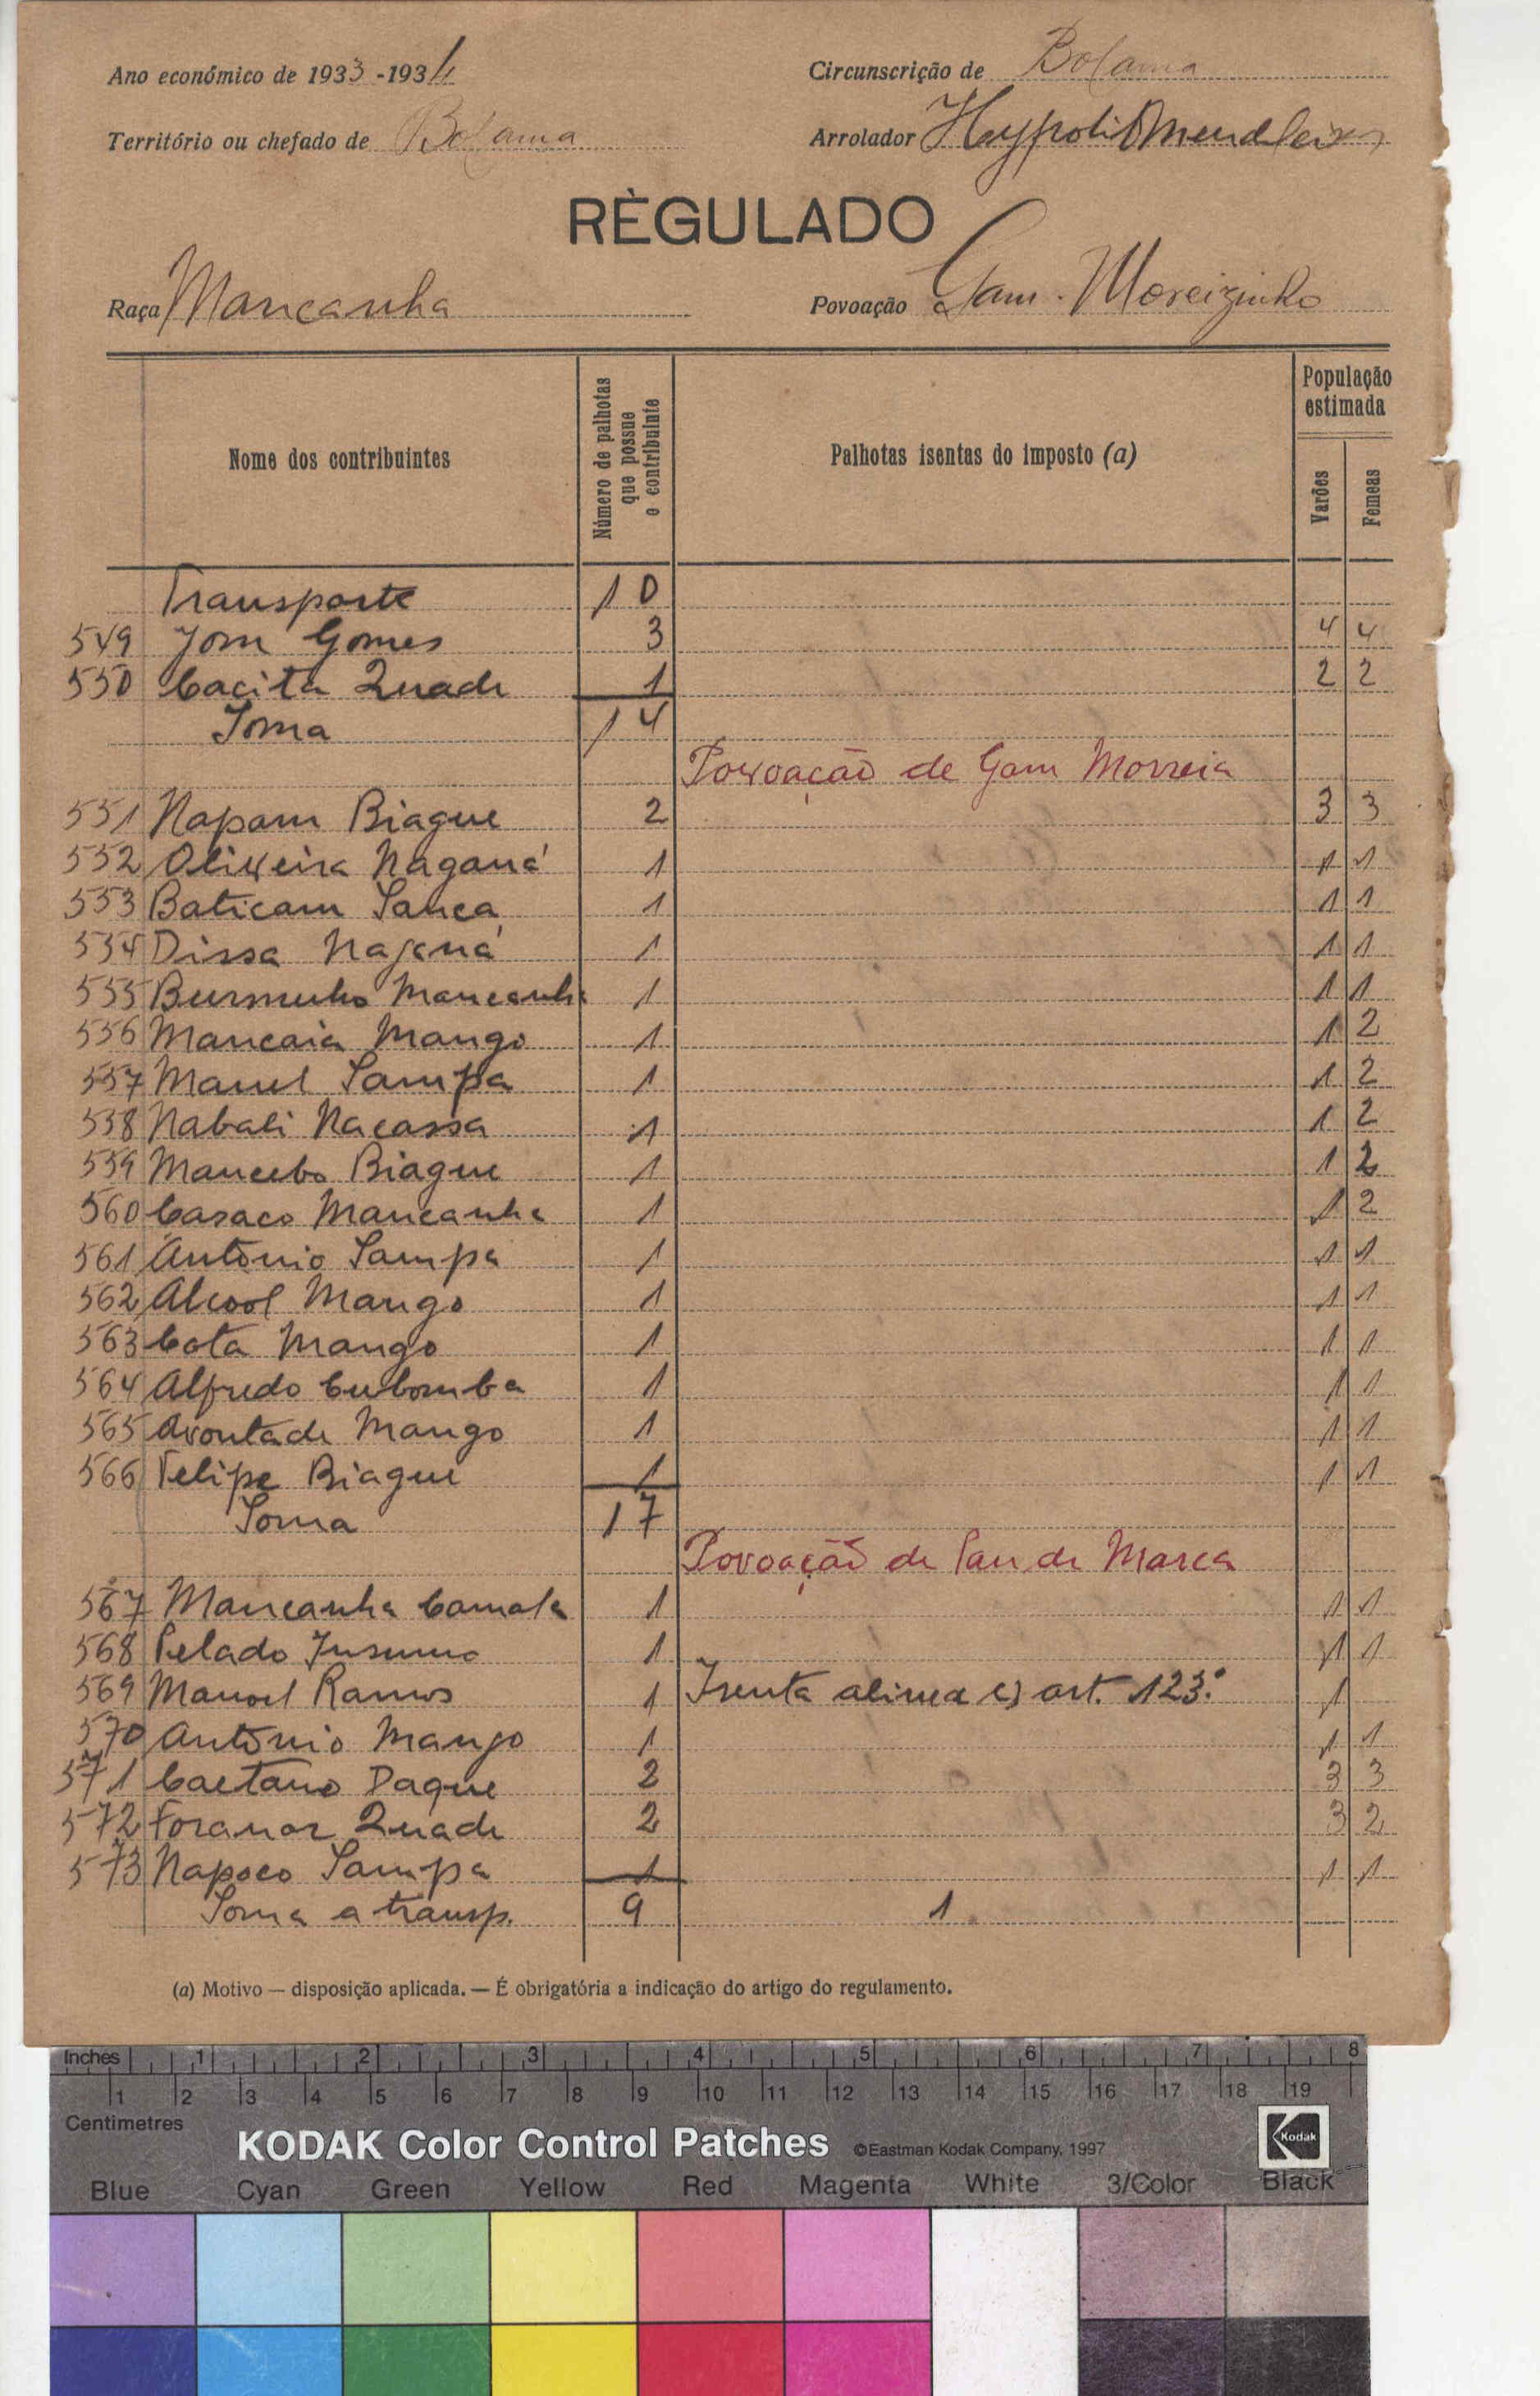 Ano económico de 1933-1934
Circunscrição de Bolama
Território ou chefado de Bolama
Arrolador
RÈGULADO
Raça Mancanha
Povoação Gam. Moreizinho
Nome dos contribuintes
Número de palhotas que possue o contribuinte
Palhotas isentas do imposto (a)
População estimada
Varões
Femeas
Transporte 10
549 Jom Gomes 3 4 4
550 Cacita Quade 1 2 2
Soma 14
Povoação de Gam Morreia
551 Napam Biague 2 3 3
552 Oliveira Naganá 1 1 1
553 Baticam Sanca 1 1 1
554 Dissa Naganá 1 1 1
555 Mancanha 1 1 1
556 Mancaia Mango 1 1 2
557 Manel Sampa 1 1 2
558 Nabali Nacassa 1 1 2
559 Mancebo Biague 1 1 2
560 Casaco Mancanha 1 1 2
561 António Sampa 1 1 1
562 Alcool Mango 1 1 1
563 Cota Mango 1 1 1
564 Alfredo Cubomba 1 1 1
565 Avontade Mango 1 1 1
566 Felipe Biague 1 1 1
Soma 17
Povoação de Pau de Marca
567 Mancanha Camala 1 1 1
568 Pelado 1 1 1
569 Manoel Ramos 1 Isenta alinea c) art. 123.º 1
570 António Mango 1 1 1
571 Caetano Daque 2 3 3
572 Foranar Quade 2 3 2
573 Napoco Sampa 1 1 1
Soma a transp. 9 1
(a) Motivo — disposição aplicada. — É obrigatória a indicação do artigo do regulamento.
Inches 1 2 3 4 5 6 7 8
1 2 3 4 5 6 7 8 9 10 11 12 13 14 15 16 17 18 19
Centimetres
KODAK Color Control Patches ©Eastman Kodak Company, 1997 Kodak
Blue Cyan Green Yellow Red Magenta White 3/Color Black